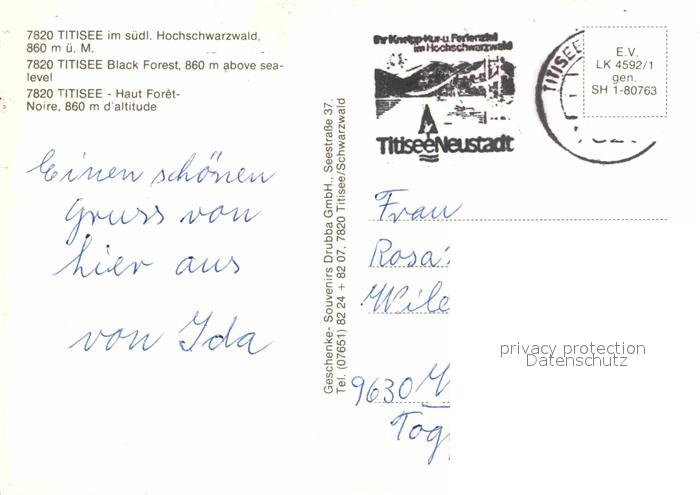 7820 TITISEE im südl. Hochschwarzwald,
860 m ü. M.
7820 TITISEE Black Forest, 860 m above sea-
level
7820 TITISEE - Haut Forêt-
Noire, 860 m d'altitude
Einen schönen
Gruss von
hier aus
von Ida
Geschenke- Souvenirs Drubba GmbH., Seestraße 37,
Tel. (07651) 82 24 + 82 07, 7820 Titisee/Schwarzwald
Ihr Kneipp-Kur-u. Ferienziel
im Hochschwarzwald
TitiseeNeustadt
TITISEE
E.V.
LK 4592/1
gen.
SH 1-80763
Frau
Rosa
9630
privacy protection
Datenschutz